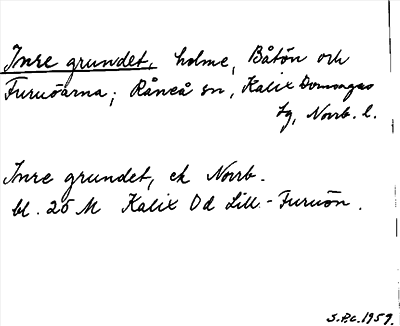 Inre grundet, holme, Båtön och
Furuöarna; Råneå sn, Kalix Domsagas
tg, Norrb. l.
Inre grundet, ek Norrb.
bl. 25 M Kalix Od Lill.-Furuön.
S.P.C. 1959.